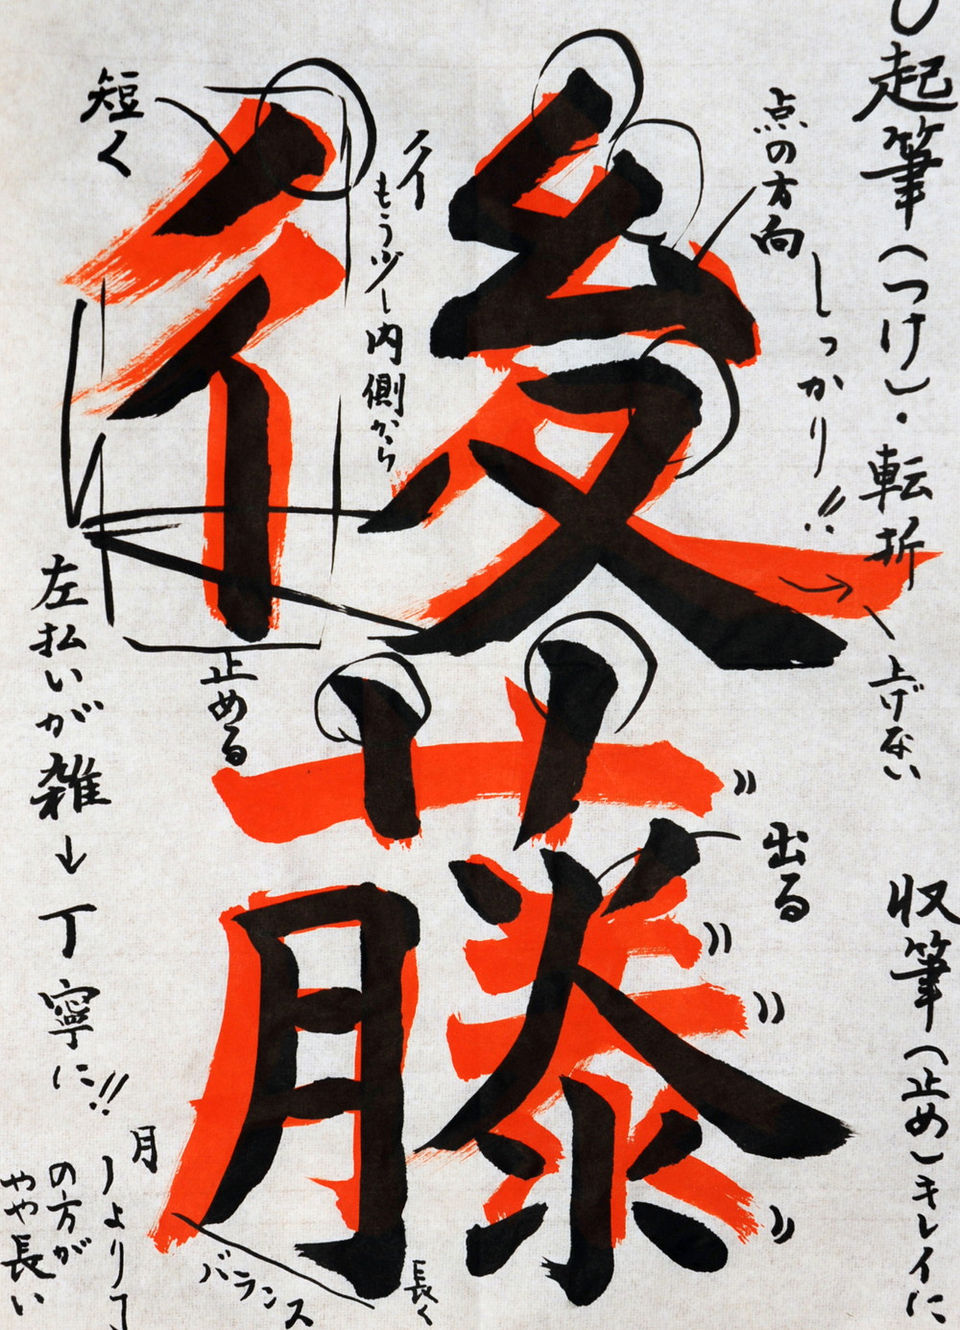 起筆(つけ)・転折
しっかり!!
収筆(止め)キレイに
点の方向
上げない
出る
後
藤
イ
もう少し内側から
短く
止める
左払いが雑→丁寧に!!
月
の方が
やや長い
バランス
長く